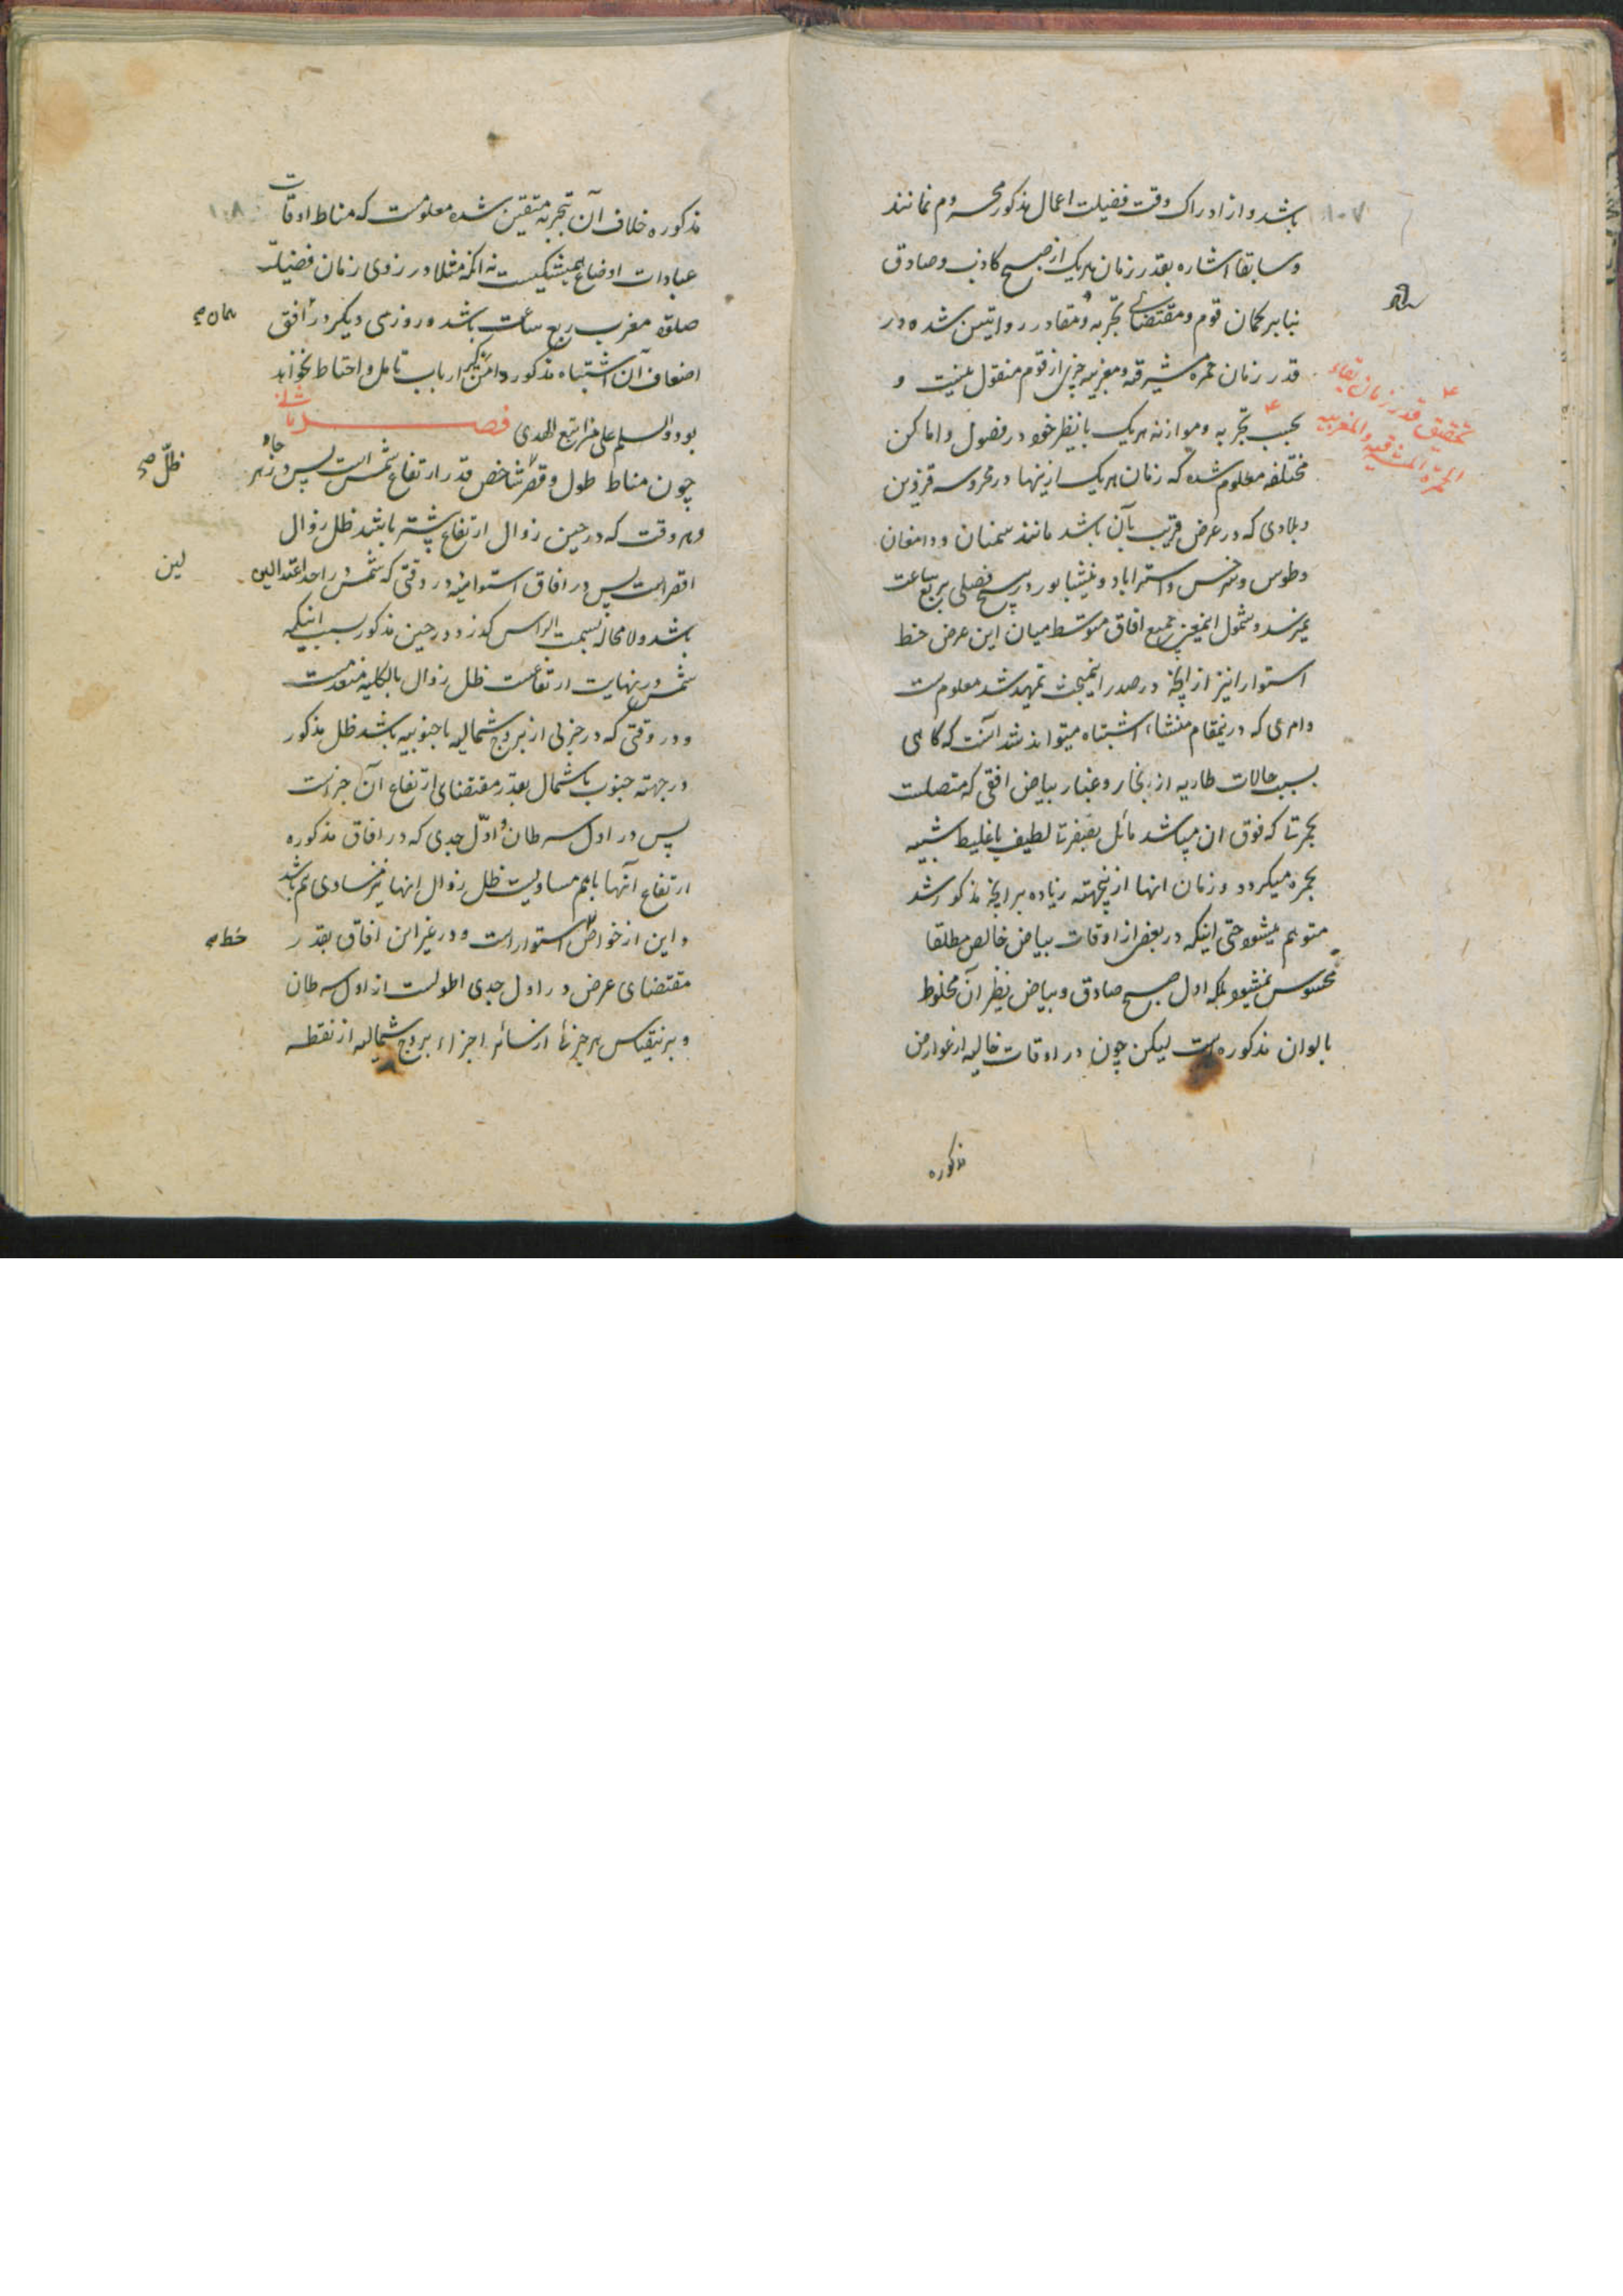 باشد و از ادراک وقت فضیلت اعمال مذکور محروم نمانند
و سابقا اشاره بقدر زمان هریک از صبح کاذب و صادق
بنابر گمان قوم و مقتضای تجربه و مقادر رواتبین شده در
قدر زمان حمره مشرقیه و مغربیه چیزی از قوم منقول نیست و
بحسب تجربه و موازنه هریک با نظیر خود در فصول و اماکن
مختلفه معلوم شده که زمان هریک ازینها در محروسه قزوین
و بلادی که در عرض قریب بآن باشد مانند سمنان و دامغان
و طوس و سرخس و استراباد و نیشابور در هیچ فصلی بربع ساعت
نمیرسد و شمول اینمعنی بجمیع افاق متوسط میان این عرض خط
استوا را نیز از آنچه در صدر اینمبحث تمهید شد معلوم است
و امری که درینمقام منشاء اشتباه میتواند شد آنست که گاهی
بسبب حالات طاریه از بخار و غبار بیاض افقی که متصلست
بحمرتا که فوق ان میباشد مائل بصفرتا لطیف یا غلیظ شبیه
بحمره میگردد و زمان انها ازینجهته زیاده بر آنچه مذکور شد
متوهم میشود حتی اینکه در بعض از اوقات بیاض خالص مطلقا
محسوس نمیشود بلکه اول صبح صادق و بیاض نظیر آن مخلوط
بالوان مذکوره است لیکن چون در اوقات خالیه از عوارض
مذکوره
تحقیق قدر زمان بقاء
الحمرة المشرقیه و المغربیه
۱۰۷
مذکوره خلاف آن بتجربه متیقن شده معلومست که مناط اوقات
عبادات اوضاع همیشگیست نه انکه مثلا در روزی زمان فضیلة
صلوة مغرب ربع ساعت باشد و روزی دیگر در افق
اضعاف آن اشتباه مذکور دامن گیر ارباب تامل و احتیاط نخواهد
بود و السلم علی من اتبع الهدی فصل ثانی
چون مناط طول و قصر شاخص قدر ارتفاع شمس است پس در هر
و هر وقت که در حین زوال ارتفاع بیشتر باشد ظل زوال
اقصر است پس در افاق استوائیه در وقتی که شمس در احد اعتدالین
باشد و لا محاله بسمت الراس گذرد و در حین مذکور بسبب اینکه
شمس در نهایت ارتفاعست ظل زوال بالکلیه منعدمست
و در وقتی که در جزئی از بروج شمالیه یا جنوبیه باشد ظل مذکور
در جهته جنوب یا شمال بقدر مقتضای ارتفاع آن جزاست
پس در اول سرطان و اوّل جدی که در افاق مذکوره
ارتفاع آنها باهم مساویست ظل زوال انها نیز مساوی هم باشد
و این از خواصّ استوا است و در غیر این افاق بقدر
مقتضای عرض در اول جدی اطولست از اول سرطان
و برینقیاس هر جزئا از سائر اجزاء بروج شمالیه از نقطه
همان صح
ظلّ صح
لین
خط صح
۱۰۸